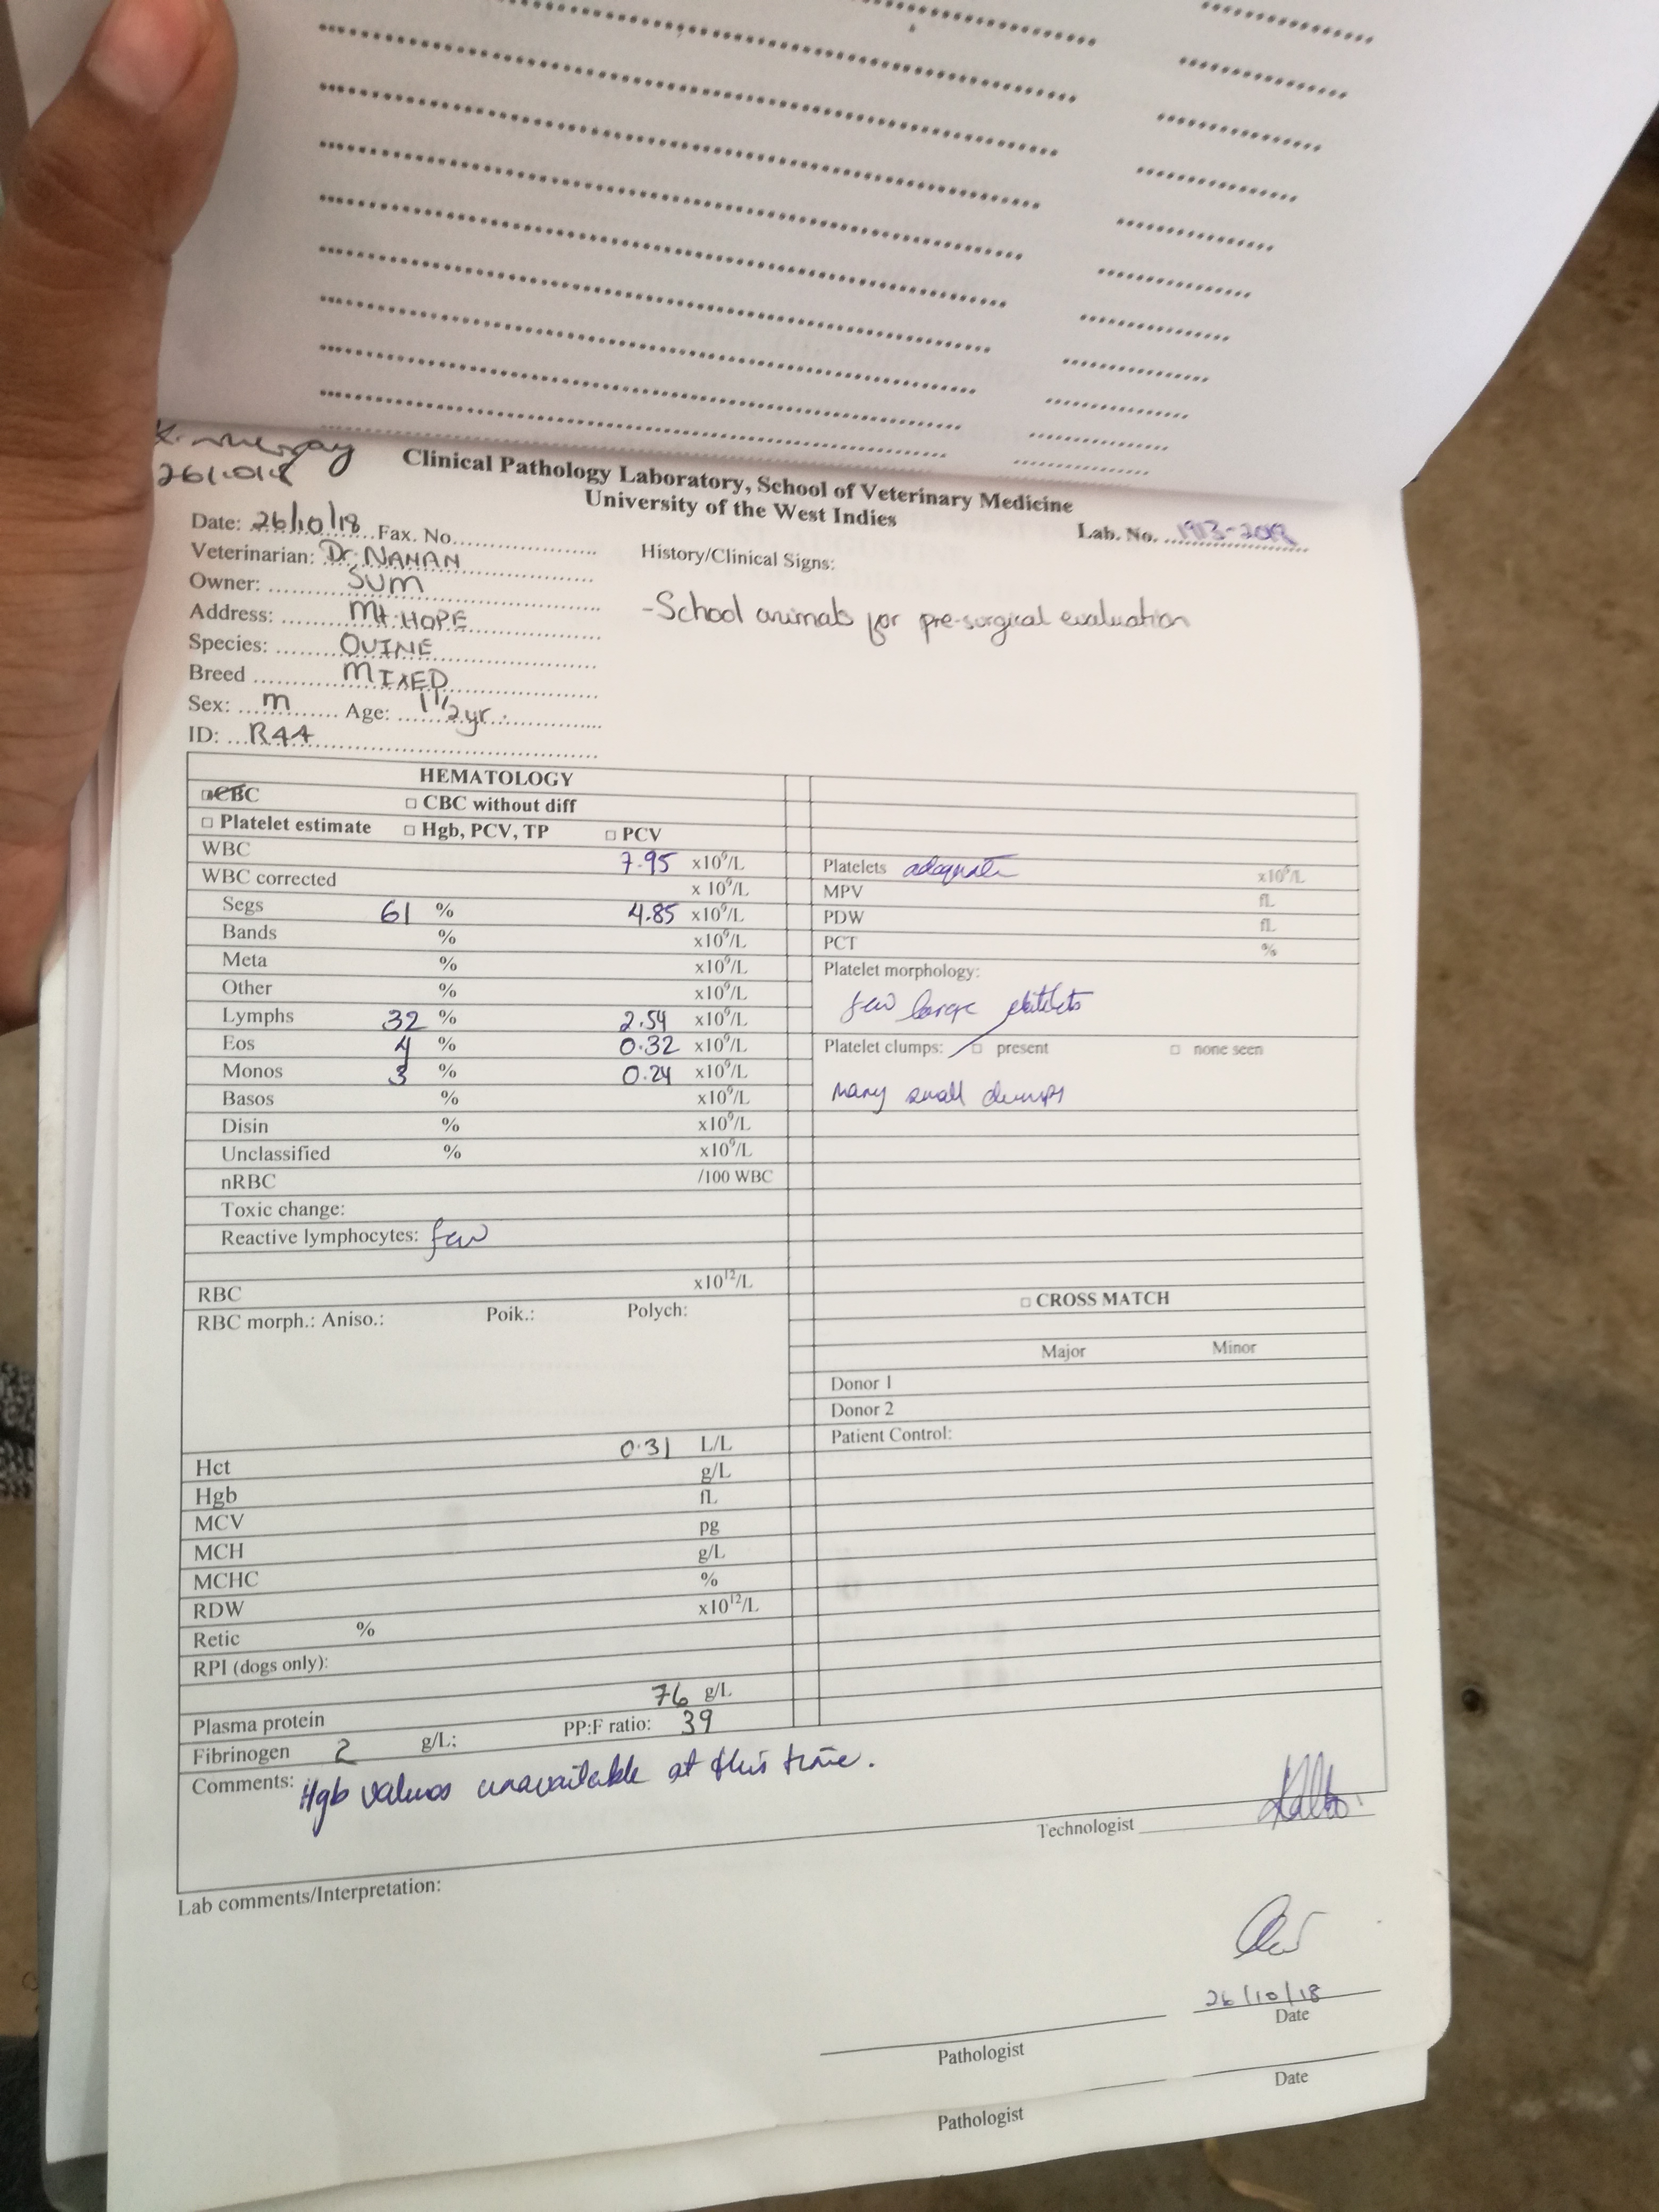 Clinical Pathology Laboratory, School of Veterinary Medicine
University of the West Indies
Lab. No.
Date: 26/10/18 Fax. No.
Veterinarian: Dr. NANAN
Owner: SVM
Address: Mt. HOPE
Species: OVINE
Breed MIXED
Sex: m Age: 1 1/2 yr.
ID: R44
History/Clinical Signs:
-School animals for pre-surgical evaluation
HEMATOLOGY
CBC □ CBC without diff
□ Platelet estimate □ Hgb, PCV, TP □ PCV
WBC 7.95 x10⁹/L
WBC corrected x 10⁹/L
Segs 61 % 4.85 x10⁹/L
Bands % x10⁹/L
Meta % x10⁹/L
Other % x10⁹/L
Lymphs 32 % 2.54 x10⁹/L
Eos 4 % 0.32 x10⁹/L
Monos 3 % 0.24 x10⁹/L
Basos % x10⁹/L
Disin % x10⁹/L
Unclassified % x10⁹/L
nRBC /100 WBC
Toxic change:
Reactive lymphocytes: few
RBC x10¹²/L
RBC morph.: Aniso.: Poik.: Polych:
Hct 0.31 L/L
Hgb g/L
MCV fL
MCH pg
MCHC g/L
RDW %
Retic % x10¹²/L
RPI (dogs only):
Plasma protein 76 g/L
Fibrinogen 2 g/L; PP:F ratio: 39
Comments: Hgb values unavailable at this time.
Platelets adequate x10⁹/L
MPV fL
PDW fL
PCT %
Platelet morphology:
few large platelets
Platelet clumps: □ present □ none seen
Many small clumps
□ CROSS MATCH
Major Minor
Donor 1
Donor 2
Patient Control:
Technologist
Lab comments/Interpretation:
26/10/18
Pathologist Date
Pathologist Date